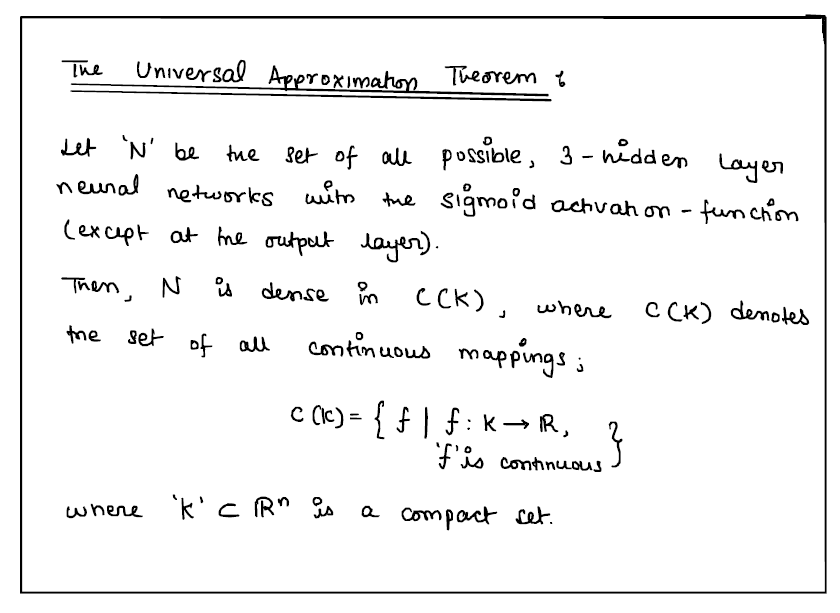 The Universal Approximation Theorem :
Let 'N' be the set of all possible, 3-hidden layer
neural networks with the sigmoid activation-function
(except at the output layer).
Then, N is dense in C(K), where C(K) denotes
the set of all continuous mappings;
C(K) = { f | f : K → ℝ,
'f' is continuous }
where 'K' ⊂ ℝⁿ is a compact set.